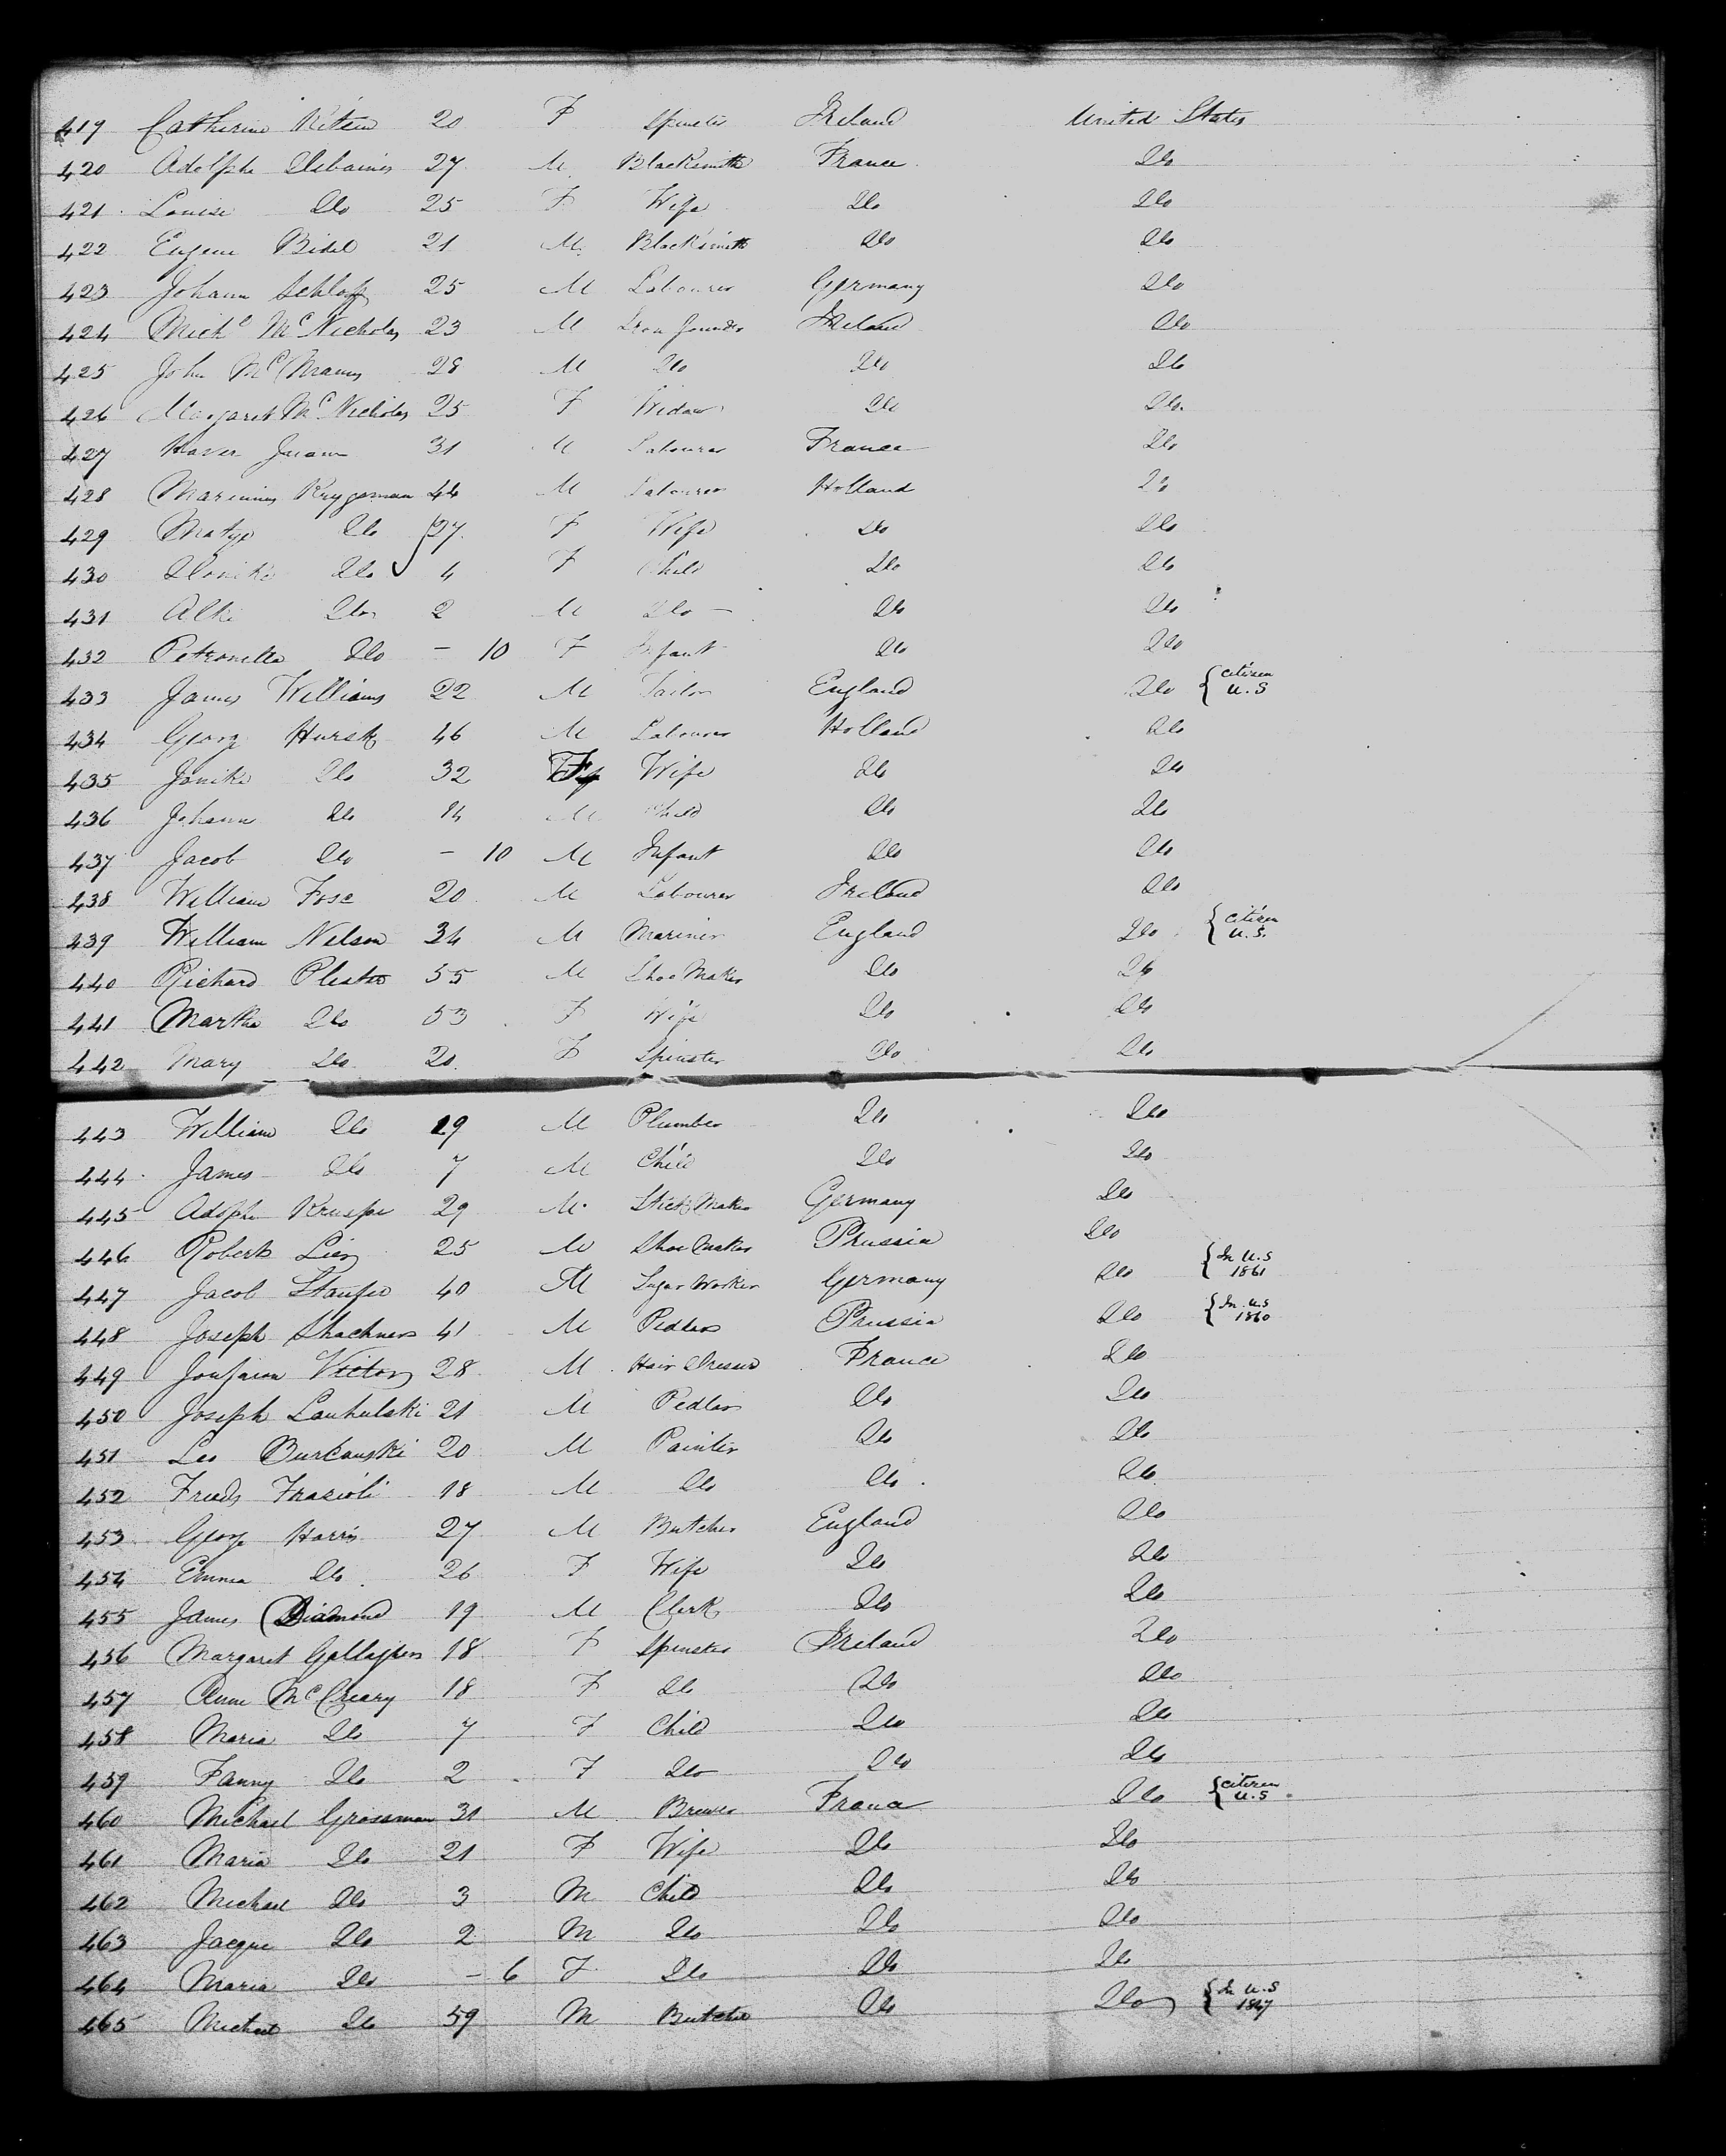 419 Catherine 20 F Spinster Ireland United States
420 Adolphe Debaines 27 M Blacksmith France Do
421 Louise Do 25 F Wife Do Do
422 Eugene Bidel 21 M Blacksmith Do Do
423 Johann Schloss 25 M Labourer Germany Do
424 Michl McNicholas 23 M Iron founder Ireland Do
425 John McManus 28 M Do Do Do
426 Margaret McNicholas 25 F Widow Do Do
427 31 M Labourer France Do
428 Marinius Krygsman 44 M Labourer Holland Do
429 Matye Do 27 F Wife Do Do
430 Do 4 F Child Do Do
431 Do 2 M Do Do Do
432 Petronella Do - 10 F Infant Do Do
433 James Williams 22 M Tailor England Do { Citizen U.S
434 George Hursk 46 M Labourer Holland Do
435 Janike Do 32 F Wife Do Do
436 Johann Do M Child Do Do
437 Jacob Do - 10 M Infant Do Do
438 William 20 M Labourer Ireland Do
439 William Nelson 34 M Mariner England Do { Citizen U.S.
440 Richard 55 M Shoe Maker Do Do
441 Martha Do 53 F Wife Do Do
442 Mary Do 20 F Spinster Do Do
443 William Do 19 M Plumber Do Do
444 James Do 7 M Child Do Do
445 Adolph Kruspe 29 M Stick Maker Germany Do
446 Robert 25 M Shoe Maker Prussia Do
447 Jacob Staufer 40 M Sugar Worker Germany Do { In U.S 1861
448 Joseph Shachners 41 M Pedlar Prussia Do { In U.S 1860
449 Victor 28 M Hair Dresser France Do
450 Joseph 21 M Pedlar Do Do
451 Leo 20 M Painter Do Do
452 Fredk Frasioli 18 M Do Do Do
453 George Harris 27 M Butcher England Do
454 Emma Do 26 F Wife Do Do
455 James Diamond 19 M Clerk Do Do
456 Margaret Gallagher 18 F Spinster Ireland Do
457 Anne McCreary 18 F Do Do Do
458 Maria Do 7 F Child Do Do
459 Fanny Do 2 F Do Do Do
460 Michael Grossman 31 M Brewer France Do { Citizen U.S
461 Maria Do 21 F Wife Do Do
462 Michael Do 3 M Child Do Do
463 Jacque Do 2 M Do Do Do
464 Maria Do - 6 F Do Do Do
465 Michael Do 59 M Butcher Do Do { In U.S 1847